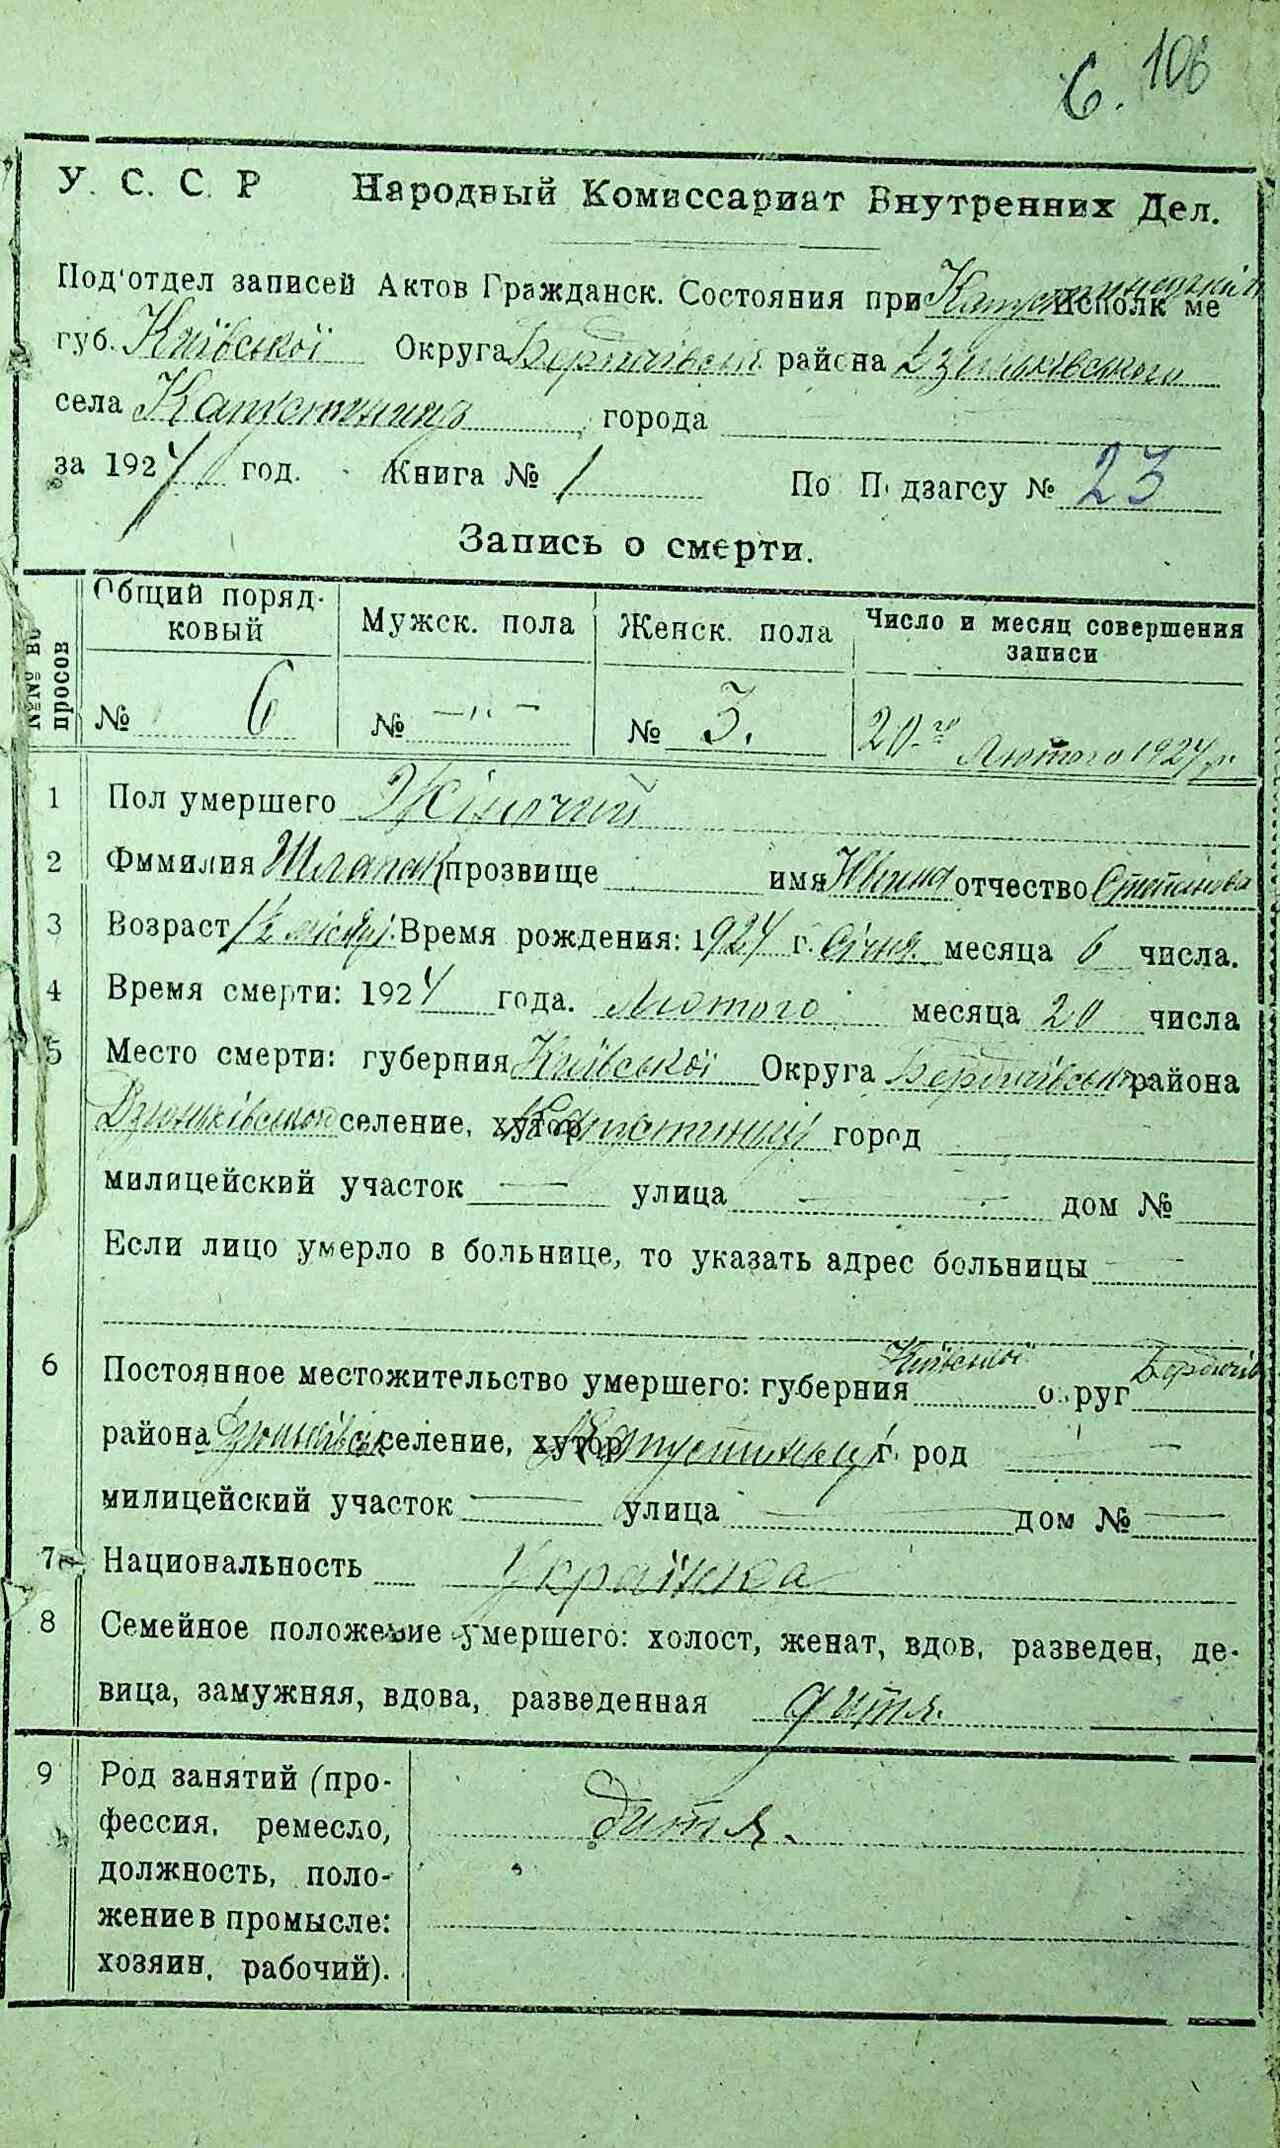 6. 106
У. С. С. Р Народный Комиссариат Внутренних Дел.
Под'отдел записей Актов Гражданск. Состояния при исполк ме
губ. Київської Округа Бердичівської района Дзюньківського
села Капустинці города
за 1924 год. Книга № 1 По П дзагсу № 23
Запись о смерти.
№№ во просов Общий поряд- Мужск. пола Женск. пола Число и месяц совершения
ковый записи
№ 6 № —"— № 3. 20-го Лютого 1924 р.
1 Пол умершего Жіночий
2 Фммилия Шлапак прозвище имя отчество Степанова
3 Возраст 1½ місяці Время рождения: 1924 г. Січня месяца 6 числа.
4 Время смерти: 1924 года. Лютого месяца 20 числа
5 Место смерти: губерния Київської Округа Бердичівської района
Дзюньківського селение, хутор Капустинці город
милицейский участок — улица — дом №
Если лицо умерло в больнице, то указать адрес больницы —
6 Постоянное местожительство умершего: губерния Київської о руг Бердичів
района Дзюньківськ селение, хутор Капустинці г род —
милицейский участок — улица — дом № —
7 Национальность Українка
8 Семейное положение умершего: холост, женат, вдов, разведен, де-
вица, замужняя, вдова, разведенная дитя.
9 Род занятий (про-
фессия, ремесло, дитя.
должность, поло-
жение в промысле:
хозяин, рабочий).